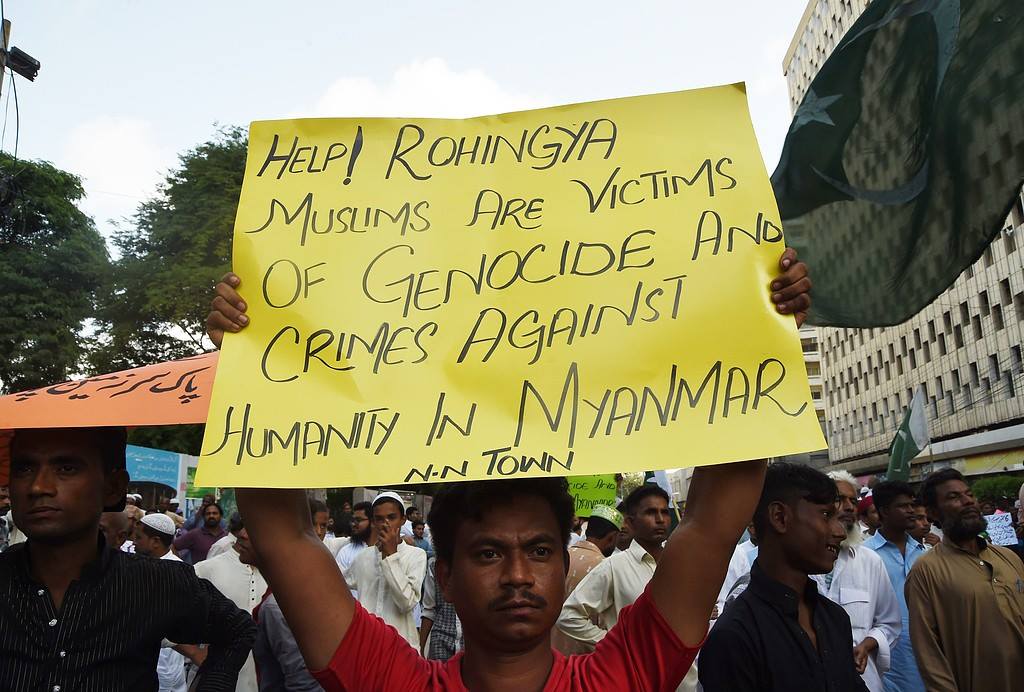 HELP! ROHINGYA
MUSLIMS ARE VICTIMS
OF GENOCIDE AND
CRIMES AGAINST
HUMANITY IN MYANMAR
N.N TOWN
پاک سرزمین